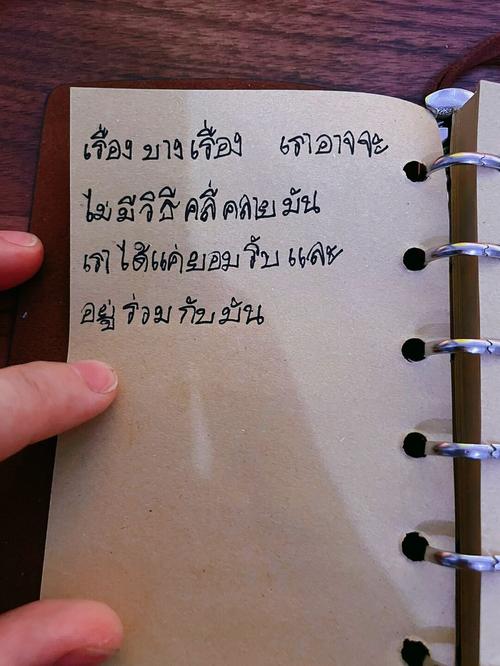 เรื่อง บาง เรื่อง เราอาจจะ
ไม่ มี วิธี คลี่ คลาย มัน
เรา ได้แค่ ยอม รับ และ
อยู่ ร่วม กับ มัน